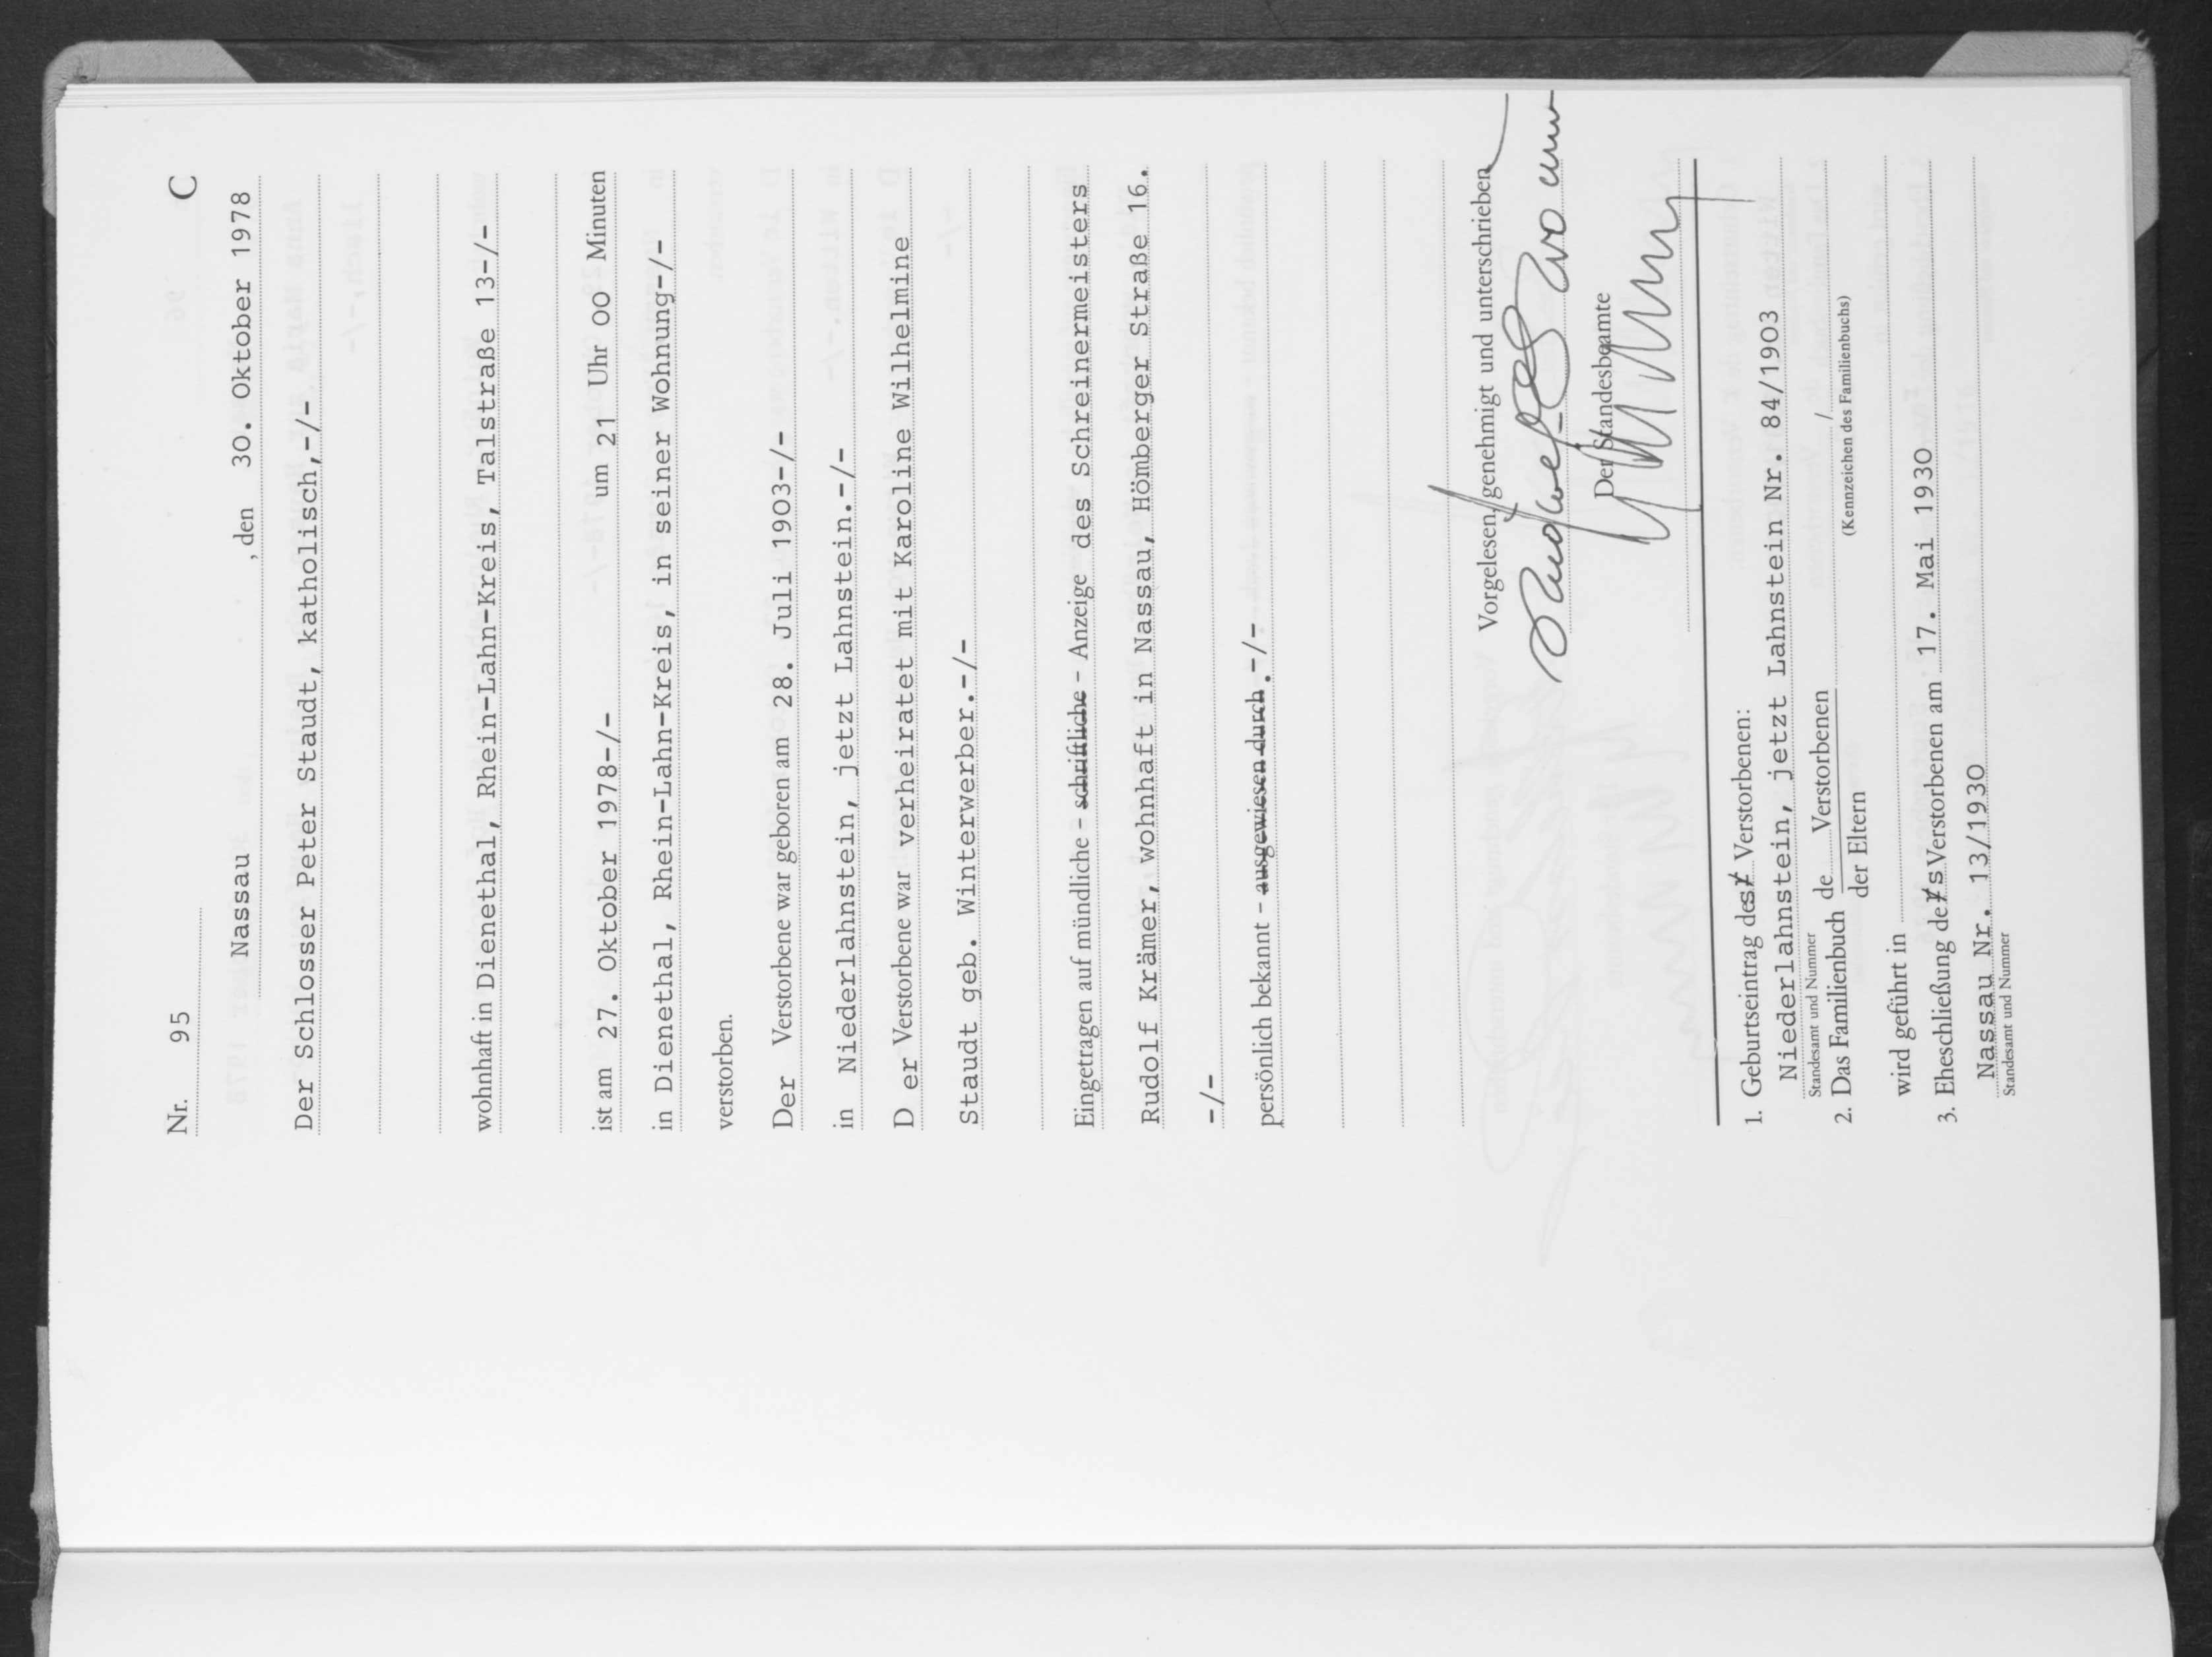 Nr. 95 C
Nassau , den 30. Oktober 1978
Der Schlosser Peter Staudt, katholisch,-/-
wohnhaft in Dienethal, Rhein-Lahn-Kreis, Talstraße 13-/-
ist am 27. Oktober 1978-/- um 21 Uhr 00 Minuten
in Dienethal, Rhein-Lahn-Kreis, in seiner Wohnung-/-
verstorben.
Der Verstorbene war geboren am 28. Juli 1903-/-
in Niederlahnstein, jetzt Lahnstein.-/-
D er Verstorbene war verheiratet mit Karoline Wilhelmine
Staudt geb. Winterwerber.-/-
Eingetragen auf mündliche - schriftliche - Anzeige des Schreinermeisters
Rudolf Krämer, wohnhaft in Nassau, Hömberger Straße 16.
-/-
persönlich bekannt - ausgewiesen durch .-/-
Vorgelesen, genehmigt und unterschrieben
Der Standesbeamte
1. Geburtseintrag des Verstorbenen:
Niederlahnstein, jetzt Lahnstein Nr. 84/1903
Standesamt und Nummer
2. Das Familienbuch de Verstorbenen /
der Eltern (Kennzeichen des Familienbuchs)
wird geführt in
3. Eheschließung des Verstorbenen am 17. Mai 1930
Nassau Nr. 13/1930
Standesamt und Nummer